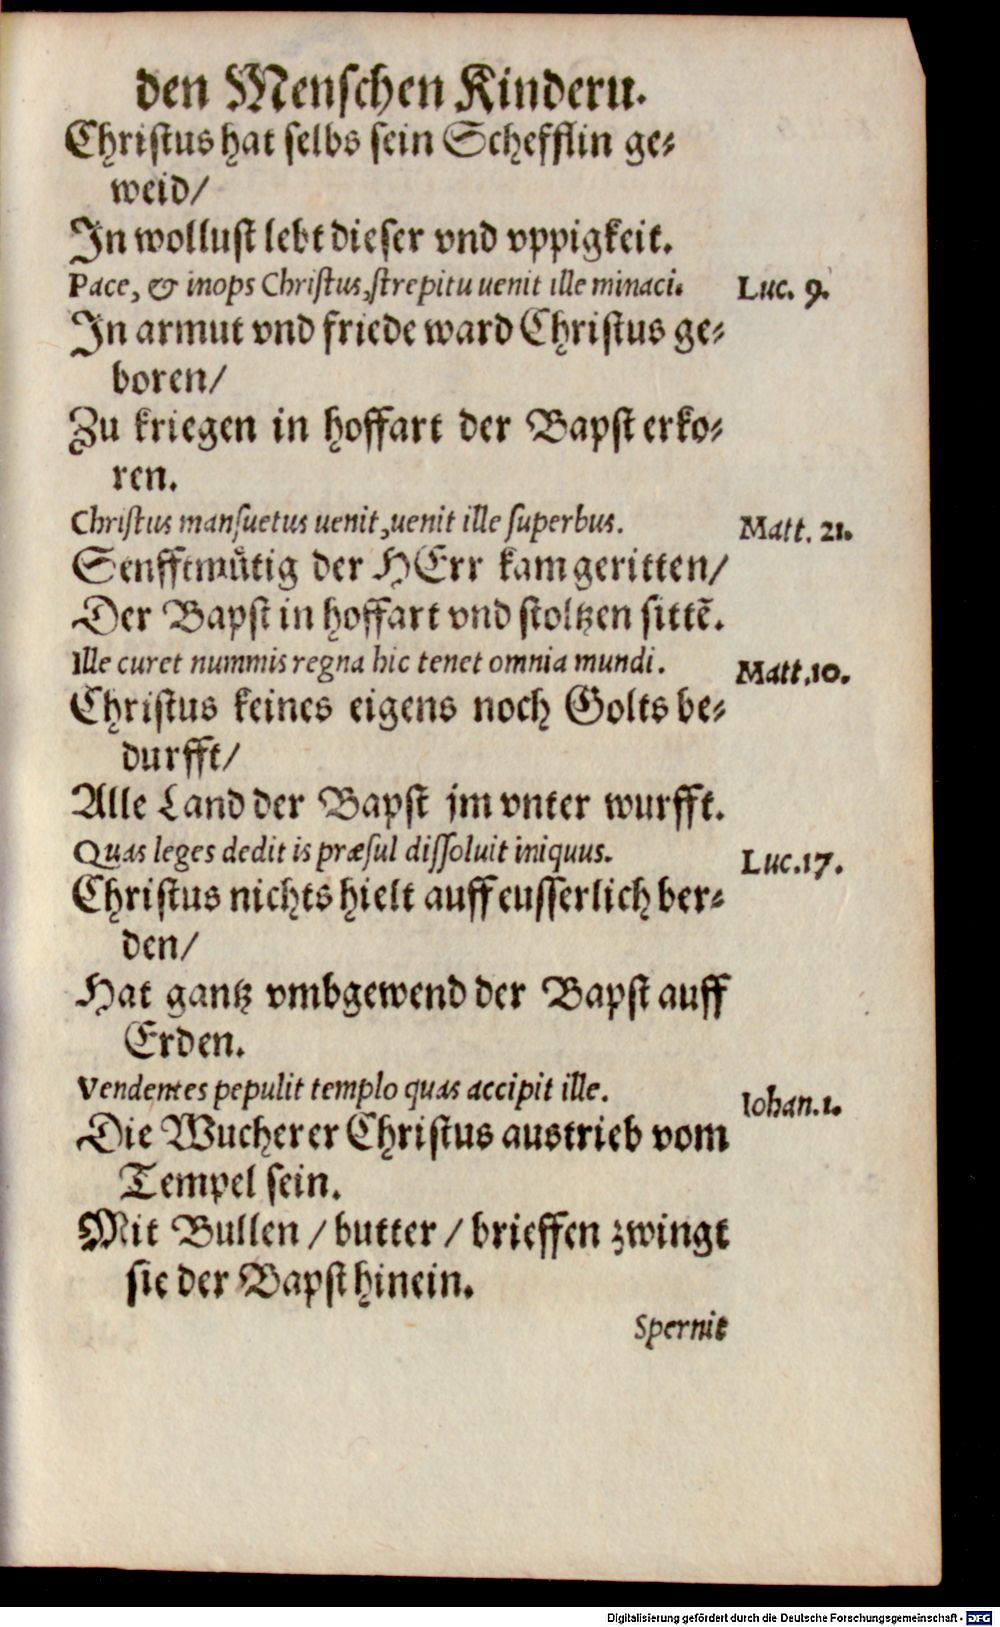 den Menschen Kinderu.
Christus hat selbs sein Schefflin ge-
weid/
In wollust lebt dieser vnd vppigkeit.
Pace, & inops Christus, strepitu uenit ille minaci. Luc. 9.
In armut vnd friede ward Christus ge-
boren/
Zu kriegen in hoffart der Bapst erko-
ren.
Christus mansuetus uenit, uenit ille superbus. Matt. 21.
Senfftmuͤtig der HErr kam geritten/
Der Bapst in hoffart vnd stoltzen sittẽ.
Ille curet nummis regna hic tenet omnia mundi. Matt. 10.
Christus keines eigens noch Golts be-
durfft/
Alle Land der Bapst jm vnter wurfft.
Quas leges dedit is præsul dissoluit iniquus. Luc. 17.
Christus nichts hielt auff eusserlich ber-
den/
Hat gantz vmbgewend der Bapst auff
Erden.
Vendentes pepulit templo quas accipit ille. Iohan. 1.
Die Wucherer Christus austrieb vom
Tempel sein.
Mit Bullen / butter / brieffen zwingt
sie der Bapst hinein.
Spernit
Digitalisierung gefördert durch die Deutsche Forschungsgemeinschaft - DFG